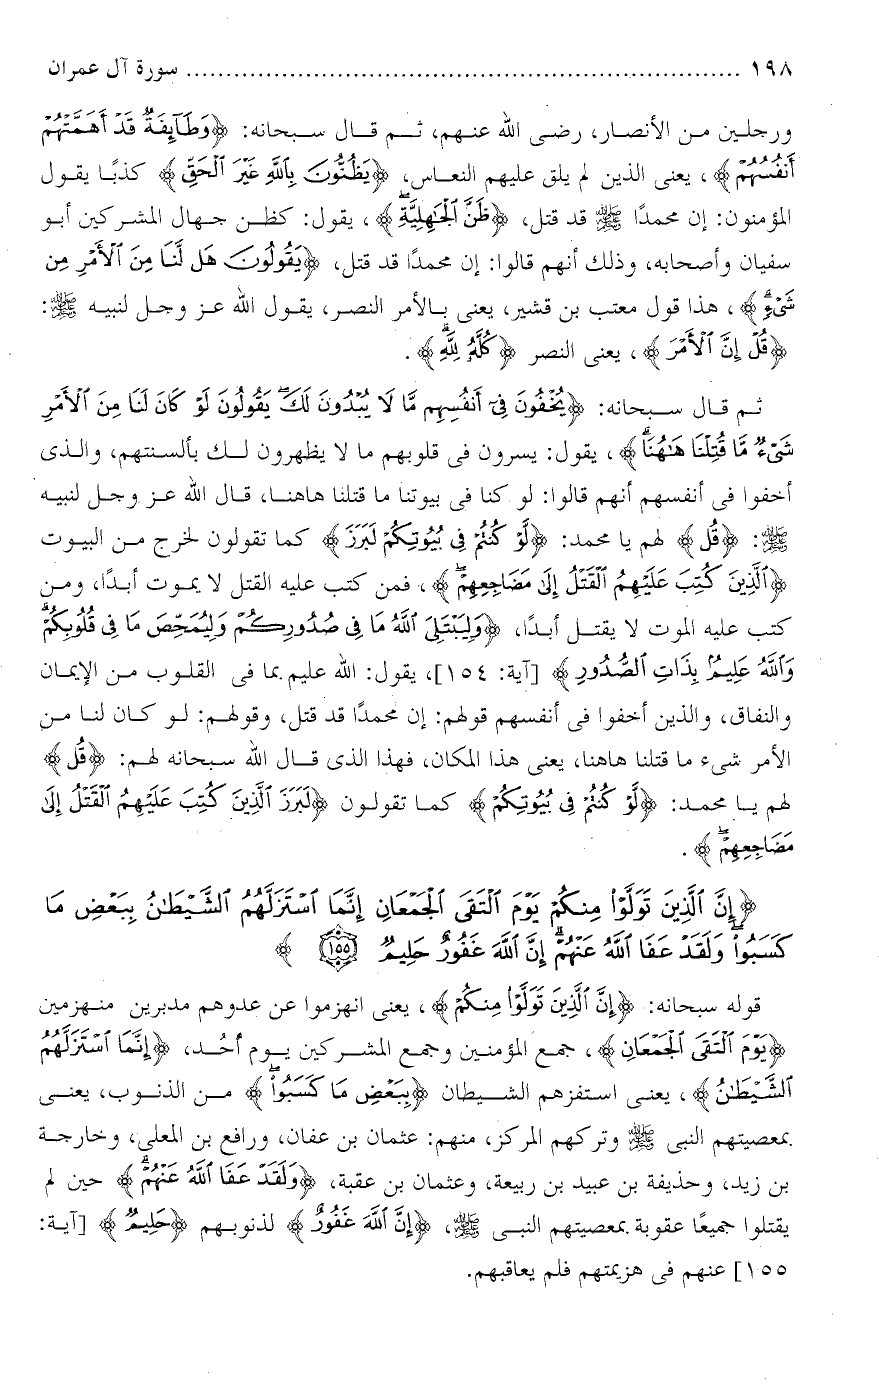 ١٩٨ ........................................................................ سورة آل عمران
ورجلين من الأنصار، رضى الله عنهم، ثم قال سبحانه: ﴿وَطَآئِفَةٌ قَدْ أَهَمَّتْهُمْ
أَنفُسُهُمْ﴾، يعنى الذين لم يلق عليهم النعاس، ﴿يَظُنُّونَ بِٱللَّهِ غَيْرَ ٱلْحَقِّ﴾ كذبًا يقول
المؤمنون: إن محمدًا ﷺ قد قتل، ﴿ظَنَّ ٱلْجَٰهِلِيَّةِۖ﴾، يقول: كظن جهال المشركين أبو
سفيان وأصحابه، وذلك أنهم قالوا: إن محمدًا قد قتل، ﴿يَقُولُونَ هَل لَّنَا مِنَ ٱلْأَمْرِ مِن
شَىْءٍۗ﴾، هذا قول معتب بن قشير، يعنى بالأمر النصر، يقول الله عز وجل لنبيه ﷺ:
﴿قُلْ إِنَّ ٱلْأَمْرَ﴾، يعنى النصر ﴿كُلَّهُۥ لِلَّهِۗ﴾.
ثم قال سبحانه: ﴿يُخْفُونَ فِىٓ أَنفُسِهِم مَّا لَا يُبْدُونَ لَكَۖ يَقُولُونَ لَوْ كَانَ لَنَا مِنَ ٱلْأَمْرِ
شَىْءٌ مَّا قُتِلْنَا هَٰهُنَاۗ﴾، يقول: يسرون فى قلوبهم ما لا يظهرون لك بألسنتهم، والذى
أخفوا فى أنفسهم أنهم قالوا: لو كنا فى بيوتنا ما قتلنا هاهنا، قال الله عز وجل لنبيه
ﷺ: ﴿قُل﴾ لهم يا محمد: ﴿لَّوْ كُنتُمْ فِى بُيُوتِكُمْ لَبَرَزَ﴾ كما تقولون لخرج من البيوت
﴿ٱلَّذِينَ كُتِبَ عَلَيْهِمُ ٱلْقَتْلُ إِلَىٰ مَضَاجِعِهِمْۖ﴾، فمن كتب عليه القتل لا يموت أبدًا، ومن
كتب عليه الموت لا يقتل أبدًا، ﴿وَلِيَبْتَلِىَ ٱللَّهُ مَا فِى صُدُورِكُمْ وَلِيُمَحِّصَ مَا فِى قُلُوبِكُمْۗ
وَٱللَّهُ عَلِيمٌۢ بِذَاتِ ٱلصُّدُورِ﴾ [آية: ١٥٤]، يقول: الله عليم بما فى القلوب من الإيمان
والنفاق، والذين أخفوا فى أنفسهم قولهم: إن محمدًا قد قتل، وقولهم: لو كان لنا من
الأمر شىء ما قتلنا هاهنا، يعنى هذا المكان، فهذا الذى قال الله سبحانه لهم: ﴿قُل﴾
لهم يا محمد: ﴿لَّوْ كُنتُمْ فِى بُيُوتِكُمْ﴾ كما تقولون ﴿لَبَرَزَ ٱلَّذِينَ كُتِبَ عَلَيْهِمُ ٱلْقَتْلُ إِلَىٰ
مَضَاجِعِهِمْۖ﴾.
﴿إِنَّ ٱلَّذِينَ تَوَلَّوْا۟ مِنكُمْ يَوْمَ ٱلْتَقَى ٱلْجَمْعَانِ إِنَّمَا ٱسْتَزَلَّهُمُ ٱلشَّيْطَٰنُ بِبَعْضِ مَا
كَسَبُوا۟ۖ وَلَقَدْ عَفَا ٱللَّهُ عَنْهُمْۗ إِنَّ ٱللَّهَ غَفُورٌ حَلِيمٌ ١٥٥ ﴾
قوله سبحانه: ﴿إِنَّ ٱلَّذِينَ تَوَلَّوْا۟ مِنكُمْ﴾، يعنى انهزموا عن عدوهم مدبرين منهزمين
﴿يَوْمَ ٱلْتَقَى ٱلْجَمْعَانِ﴾، جمع المؤمنين وجمع المشركين يوم أُحُد، ﴿إِنَّمَا ٱسْتَزَلَّهُمُ
ٱلشَّيْطَٰنُ﴾، يعنى استفزهم الشيطان ﴿بِبَعْضِ مَا كَسَبُوا۟ۖ﴾ من الذنوب، يعنى
بمعصيتهم النبى ﷺ وتركهم المركز، منهم: عثمان بن عفان، ورافع بن المعلى، وخارجة
بن زيد، وحذيفة بن عبيد بن ربيعة، وعثمان بن عقبة، ﴿وَلَقَدْ عَفَا ٱللَّهُ عَنْهُمْۗ﴾ حين لم
يقتلوا جميعًا عقوبة بمعصيتهم النبى ﷺ، ﴿إِنَّ ٱللَّهَ غَفُورٌ﴾ لذنوبهم ﴿حَلِيمٌ﴾ [آية:
١٥٥] عنهم فى هزيمتهم فلم يعاقبهم.